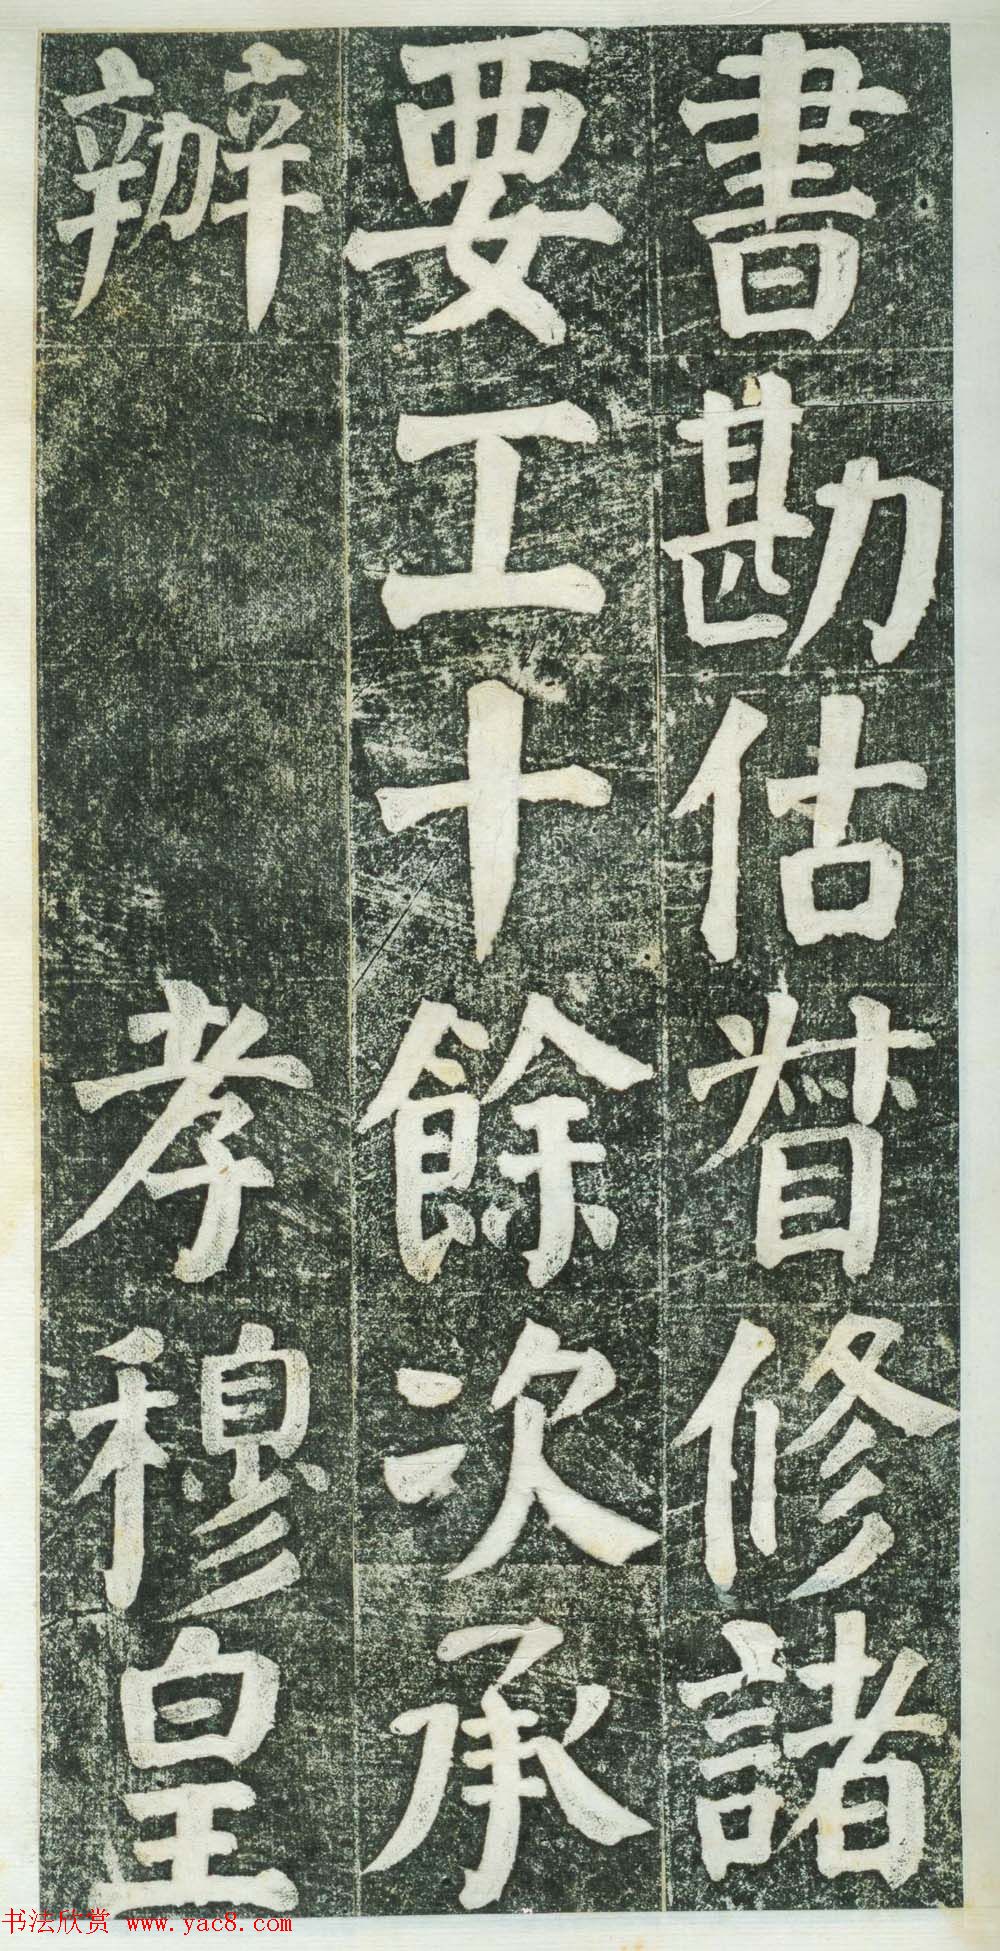 書勘估督修諸
要工十餘次承
辦 孝穆皇
书法欣赏 www.yac8.com